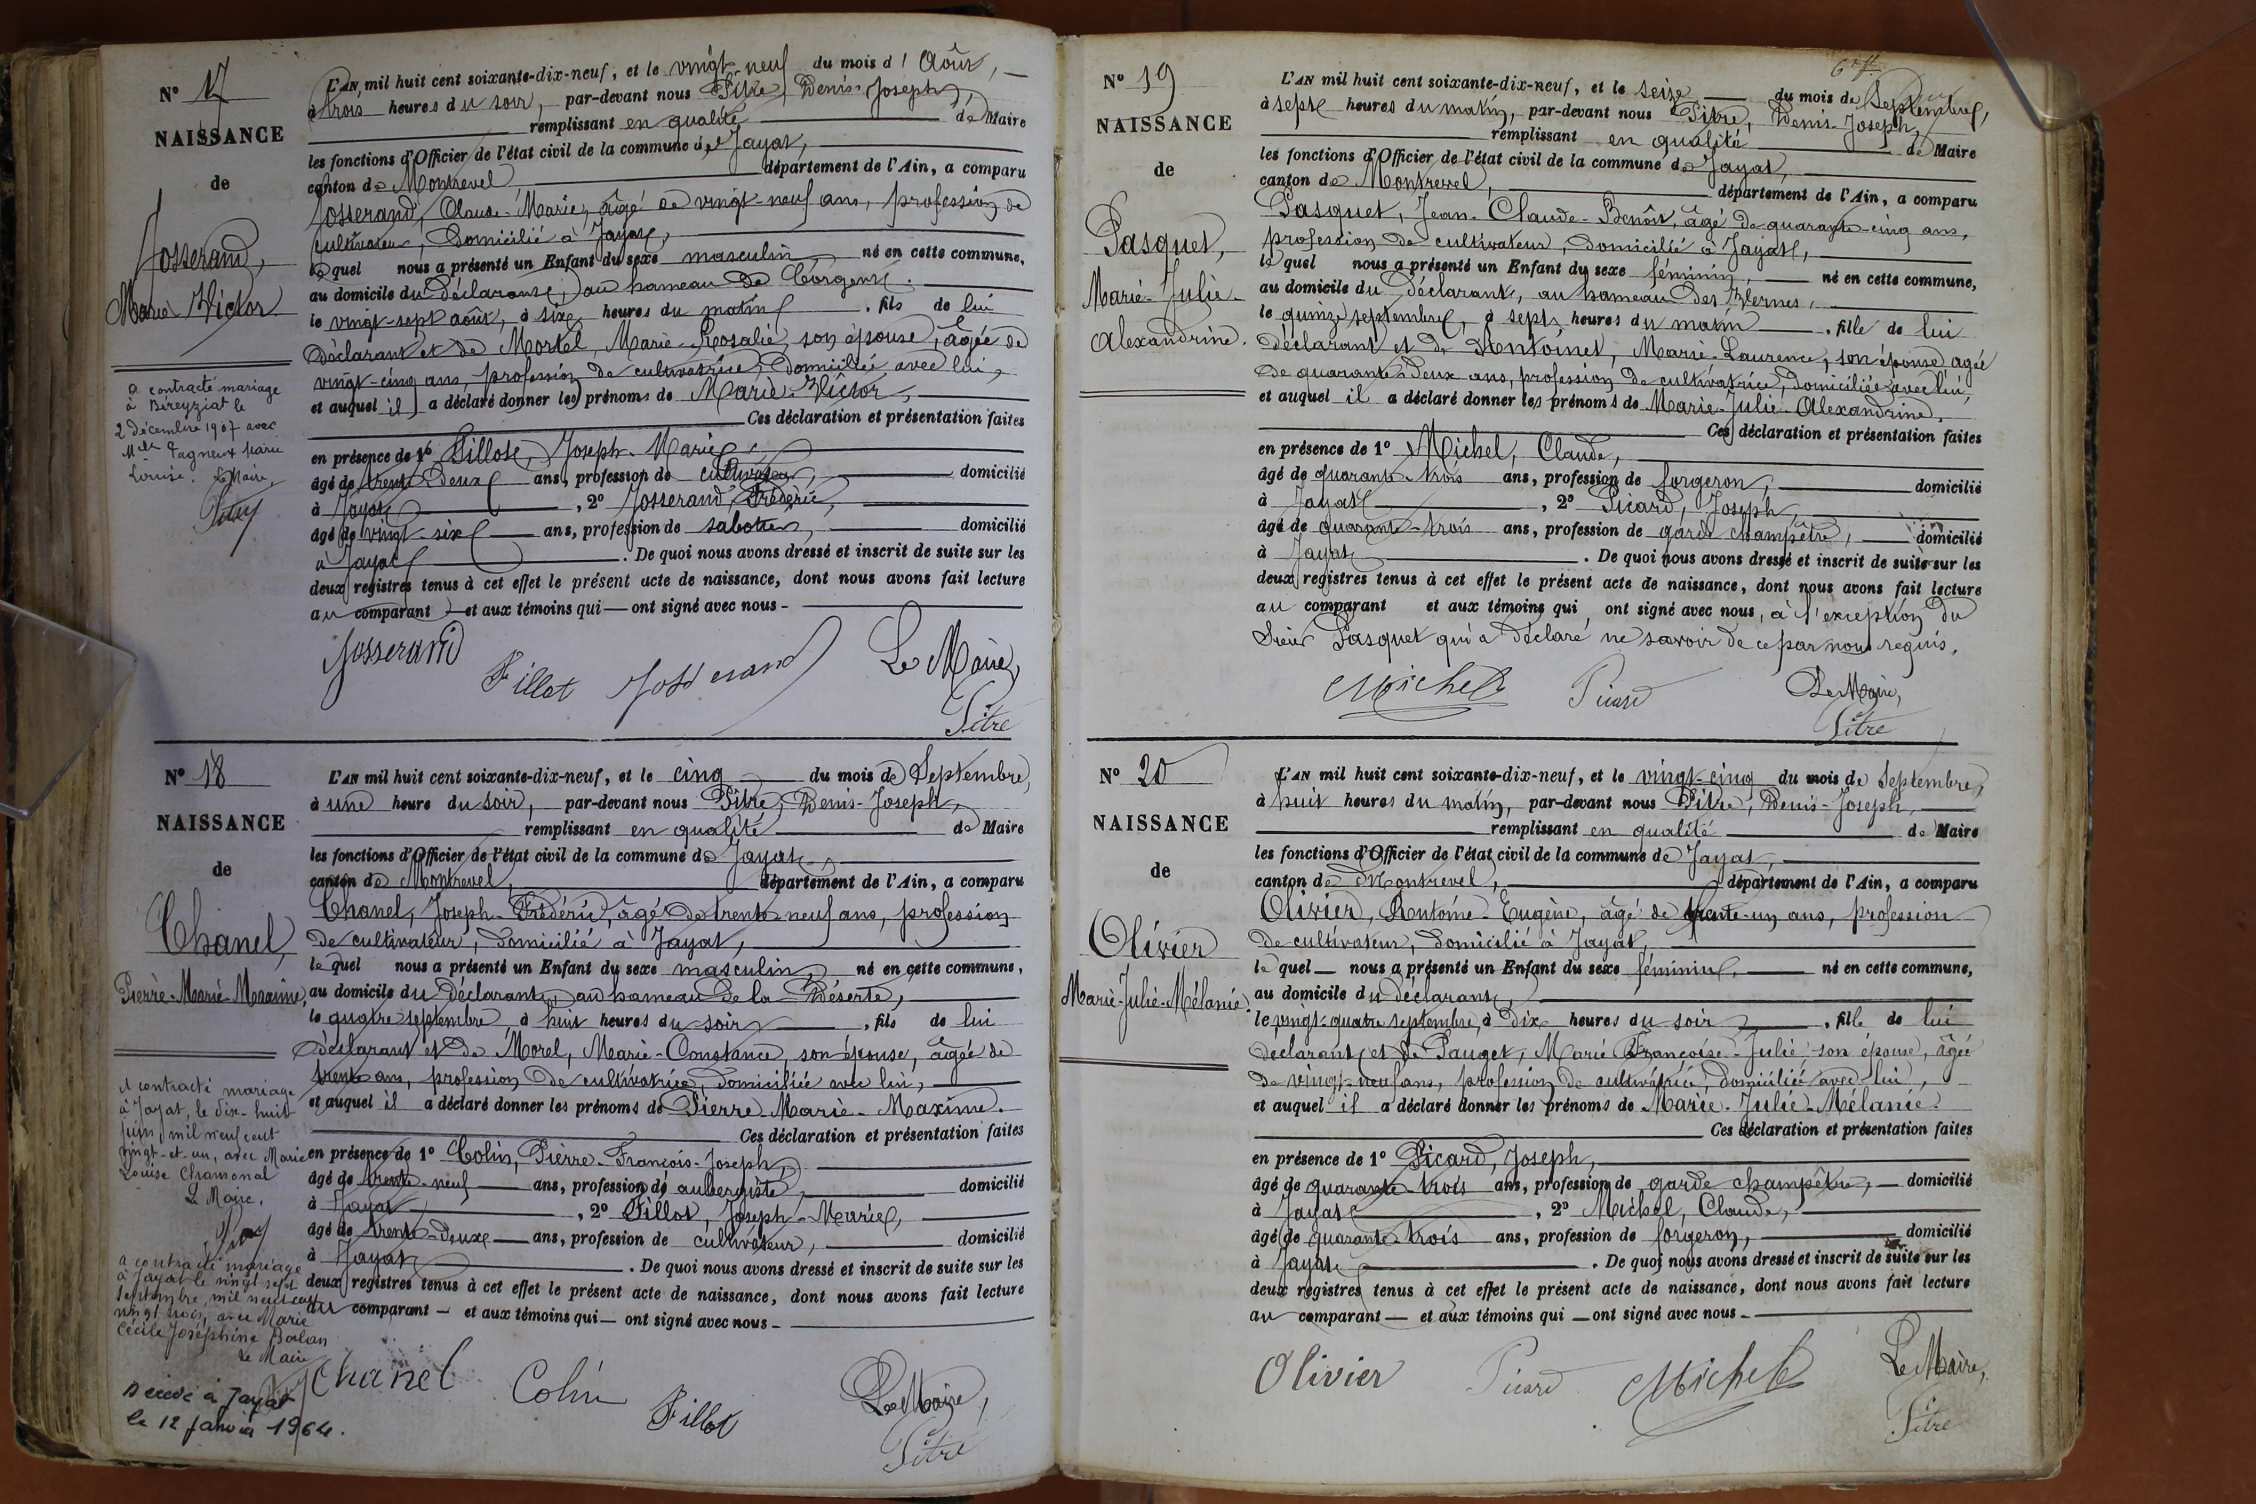 N° 17
NAISSANCE
de
Josserand,
Marie Victor
a contracté mariage
à Béreyziat le
2 décembre 1907 avec
Melle Pagneux Marie
Louise. Le Maire,
L'AN mil huit cent soixante-dix-neuf, et le vingt-neuf du mois d'Août,
à trois heures du soir, par-devant nous Pitre, Denis-Joseph,
remplissant en qualité de Maire
les fonctions d'Officier de l'état civil de la commune de Jayat,
canton de Montrevel département de l'Ain, a comparu
Josserand, Claude-Marie, âgé de vingt-neuf ans, profession de
cultivateur, domicilié à Jayat,
lequel nous a présenté un Enfant du sexe masculin, né en cette commune,
au domicile du déclarant, au hameau de Corgent.
le vingt-sept août, à six heures du matin, fils de lui
déclarant et de Mortel, Marie-Rosalie, son épouse, âgée de
vingt-cinq ans, profession de cultivatrice, domiciliée avec lui,
et auquel il a déclaré donner les prénoms de Marie-Victor,
Ces déclaration et présentation faites
en présence de 1° Fillot, Joseph-Marie,
âgé de trente-deux ans, profession de cultivateur, domicilié
à Jayat, 2° Josserand Frédéric,
âgé de vingt-six ans, profession de sabotier, domicilié
à Jayat. De quoi nous avons dressé et inscrit de suite sur les
deux registres tenus à cet effet le présent acte de naissance, dont nous avons fait lecture
au comparant et aux témoins qui ont signé avec nous -
Josserand Fillot Josserand Le Maire,
Pitre
N° 18
NAISSANCE
de
Chanel,
Pierre-Marie-Maxime,
A contracté mariage
à Jayat, le dix-huit
juin mil neuf cent
vingt-et-un, avec Marie
Louise Chamonal
Le Maire,
a contracté mariage
à Jayat le vingt sept
septembre mil neuf cent
vingt trois, avec Marie
Cécile Joséphine Balan
Le Maire
Décédé à Jayat
le 12 janvier 1964.
L'AN mil huit cent soixante-dix-neuf, et le cinq du mois de Septembre,
à une heure du soir, par-devant nous Pitre, Denis-Joseph,
remplissant en qualité de Maire
les fonctions d'Officier de l'état civil de la commune de Jayat,
canton de Montrevel, département de l'Ain, a comparu
Chanel, Joseph-Frédéric, âgé de trente-neuf ans, profession
de cultivateur, domicilié à Jayat,
lequel nous a présenté un Enfant du sexe masculin, né en cette commune,
au domicile du déclarant, au hameau de la Déserte,
le quatre septembre à huit heures du soir, fils de lui
déclarant et de Morel, Marie-Constance, son épouse, âgée de
trente ans, profession de cultivatrice, domiciliée avec lui,
et auquel il a déclaré donner les prénoms de Pierre-Marie-Maxime.
Ces déclaration et présentation faites
en présence de 1° Colin, Pierre-François-Joseph,
âgé de trente-neuf ans, profession de aubergiste, domicilié
à Jayat, 2° Fillot, Joseph-Marie,
âgé de trente-deux ans, profession de cultivateur, domicilié
à Jayat. De quoi nous avons dressé et inscrit de suite sur les
deux registres tenus à cet effet le présent acte de naissance, dont nous avons fait lecture
au comparant - et aux témoins qui - ont signé avec nous -
Chanel Colin Fillot Le Maire,
Pitre
N° 19
NAISSANCE
de
Pasquet,
Marie-Julie-
Alexandrine.
L'AN mil huit cent soixante-dix-neuf, et le seize du mois de Septembre,
à sept heures du matin, par-devant nous Pitre, Denis-Joseph,
remplissant en qualité de Maire
les fonctions d'Officier de l'état civil de la commune de Jayat,
canton de Montrevel, département de l'Ain, a comparu
Pasquet, Jean-Claude-Benoît, âgé de quarante-cinq ans,
profession de cultivateur, domicilié à Jayat,
lequel nous a présenté un Enfant du sexe féminin, né en cette commune,
au domicile du déclarant, au hameau des Vernes,
le quinze septembre, à sept heures du matin, fille de lui
déclarant et de Antoinet, Marie-Laurence, son épouse agée
de quarante-deux ans, profession de cultivatrice, domiciliée avec lui,
et auquel il a déclaré donner les prénoms de Marie-Julie-Alexandrine,
Ces déclaration et présentation faites
en présence de 1° Michel, Claude,
âgé de quarante-trois ans, profession de forgeron, domicilié
à Jayat, 2° Picard, Joseph,
âgé de quarante-trois ans, profession de garde champêtre, domicilié
à Jayat. De quoi nous avons dressé et inscrit de suite sur les
deux registres tenus à cet effet le présent acte de naissance, dont nous avons fait lecture
au comparant et aux témoins qui ont signé avec nous, à l'exception du
Sieur Pasquet qui a déclaré ne savoir de ce par nous requis.
Michel Picard Le Maire,
Pitre
N° 20
NAISSANCE
de
Olivier
Marie-Julie-Mélanie
L'AN mil huit cent soixante-dix-neuf, et le vingt-cinq du mois de Septembre,
à huit heures du matin, par-devant nous Pitre, Denis-Joseph,
remplissant en qualité de Maire
les fonctions d'Officier de l'état civil de la commune de Jayat,
canton de Montrevel, département de l'Ain, a comparu
Olivier, Antoine-Eugène, âgé de trente-un ans, profession
de cultivateur, domicilié à Jayat,
lequel - nous a présenté un Enfant du sexe féminin, né en cette commune,
au domicile du déclarant,
le vingt-quatre septembre, à dix heures du soir, fille de lui
déclarant, et de Pauget, Marie Françoise-Julie, son épouse, âgée
de vingt-neuf ans, profession de cultivatrice, domiciliée avec lui,
et auquel il a déclaré donner les prénoms de Marie-Julie-Mélanie.
Ces déclaration et présentation faites
en présence de 1° Picard, Joseph,
âgé de quarante-trois ans, profession de garde champêtre, domicilié
à Jayat, 2° Michel, Claude,
âgé de quarante-trois ans, profession de forgeron, domicilié
à Jayat. De quoi nous avons dressé et inscrit de suite sur les
deux registres tenus à cet effet le présent acte de naissance, dont nous avons fait lecture
au comparant - et aux témoins qui - ont signé avec nous -
Olivier Picard Michel Le Maire,
Pitre